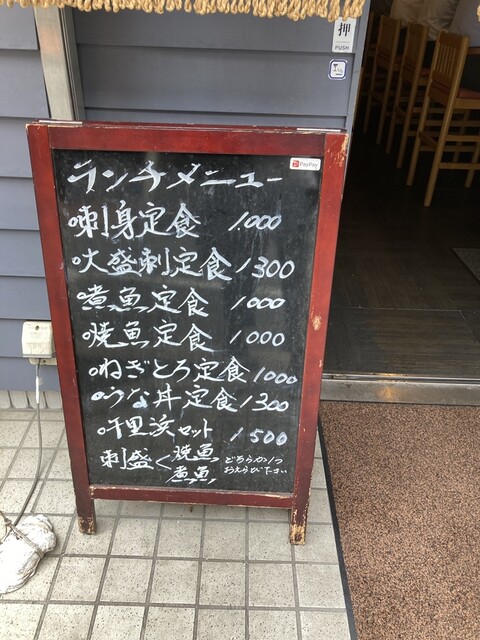 押
PUSH
PayPay
ランチメニュー
○刺身定食 1000
○大盛刺定食 1300
○煮魚定食 1000
○焼魚定食 1000
○ねぎとろ定食 1000
○うな丼定食 1300
○千里浜セット 1500
刺盛く焼魚 どちらか1つ
煮魚 おえらび下さい